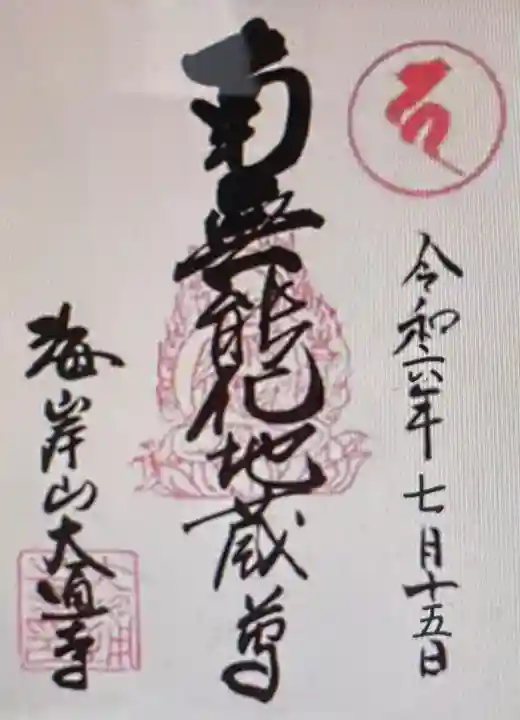 令和六年七月十五日
南無能化地蔵尊
海岸山大道寺